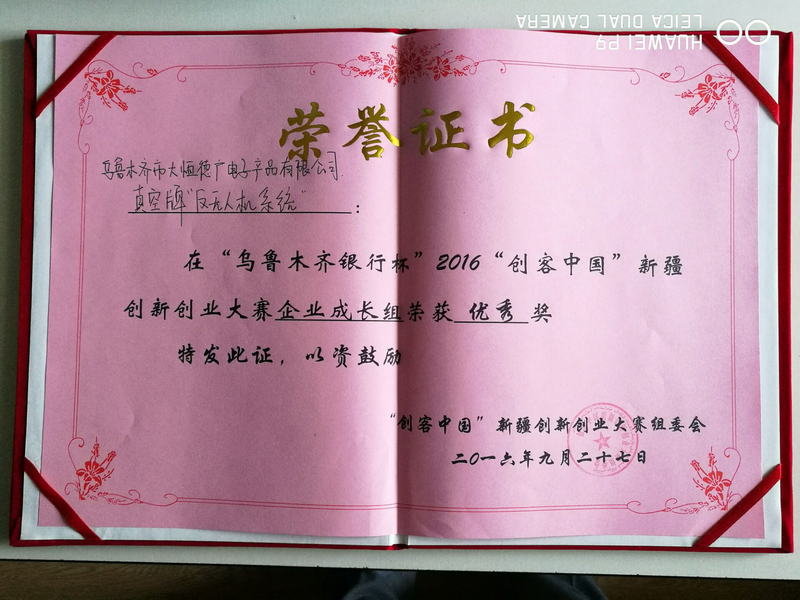 HUAWEI P9
LEICA DUAL CAMERA
荣誉证书
乌鲁木齐市大恒德广电子产品有限公司.
真空牌"反无人机系统" :
在“乌鲁木齐银行杯”2016“创客中国”新疆
创新创业大赛企业成长组荣获 优秀 奖
特发此证，以资鼓励
“创客中国”新疆创新创业大赛组委会
二〇一六年九月二十七日